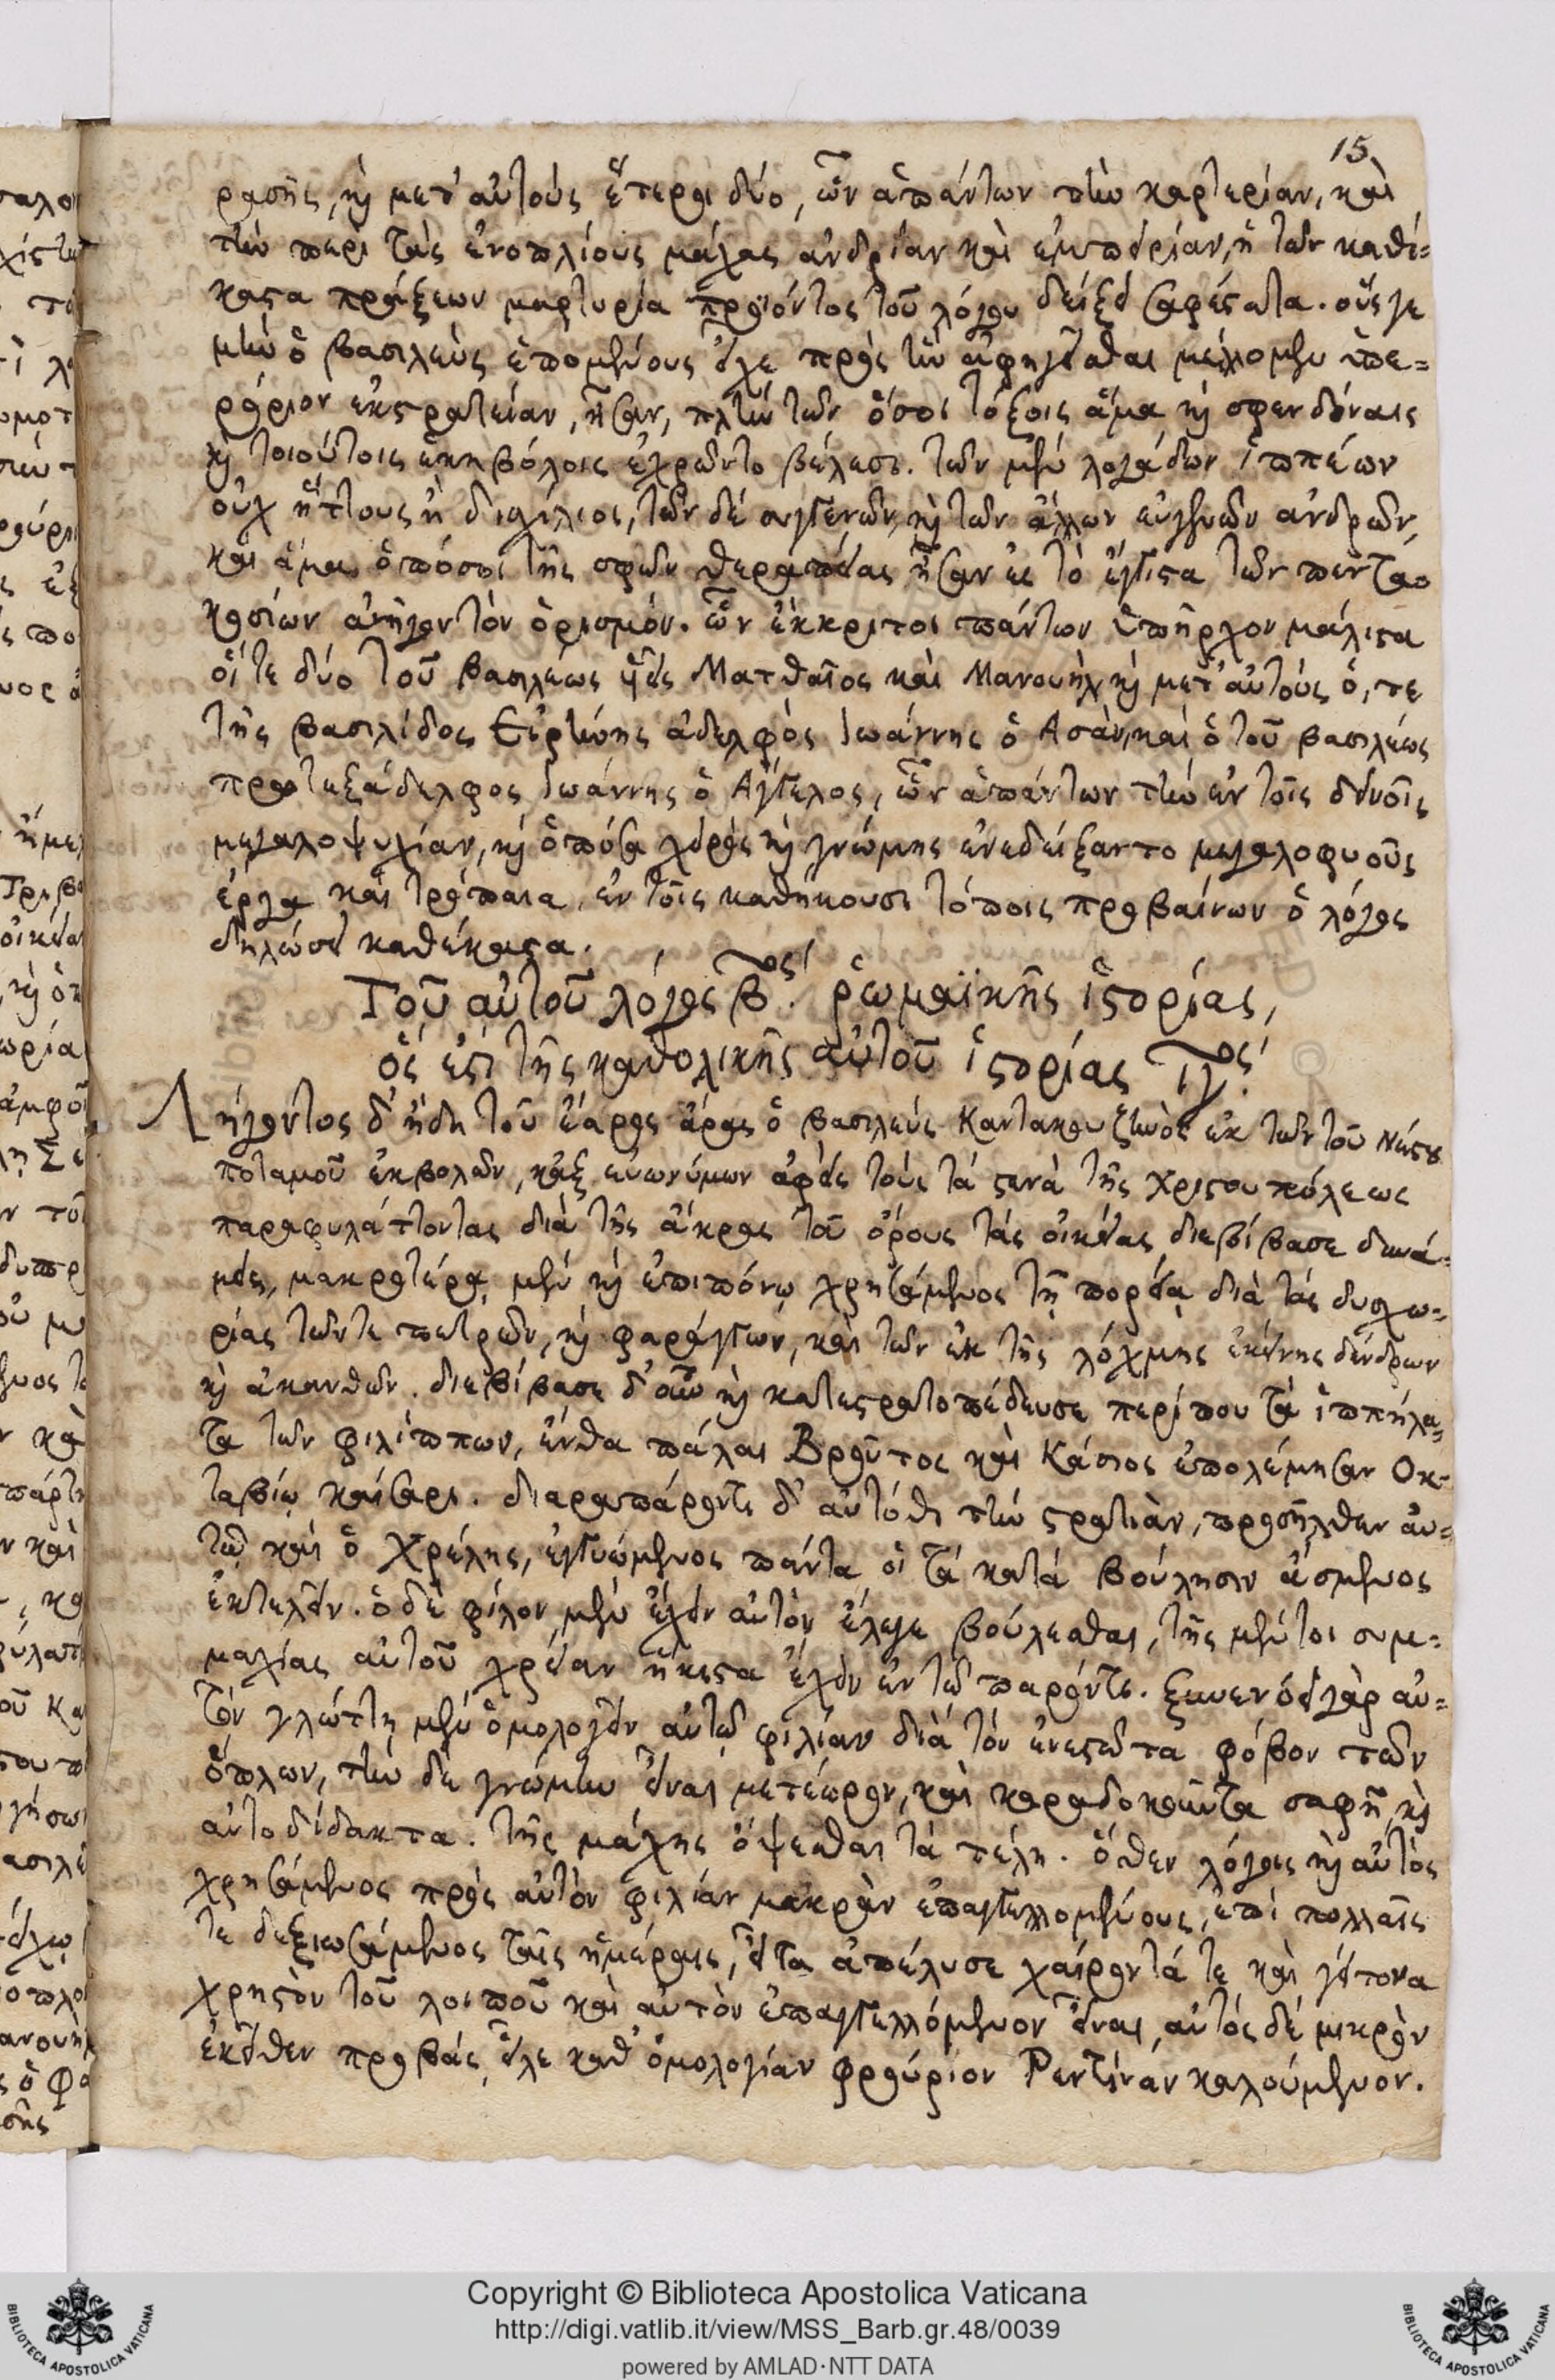 15
ρασῆς, καὶ μετ' αὐτοὺς ἕτεροι δύο, ὧν ἁπάντων τὴν καρτερίαν, καὶ
τὴν περὶ τὰς ἐνοπλίους μάχας ἀνδρίαν καὶ ἐμπειρίαν, ἡ τῶν καθέ-
καστα πράξεων μαρτυρία προϊόντος τοῦ λόγου δείξει σαφέστατα. οὕς γε
μὴν ὁ βασιλεὺς ἑπομένους εἶχε πρὸς ἣν ἀφηγεῖσθαι μέλλομεν ὑπε-
ρόριον ἐκστρατείαν, ἦσαν, πλὴν τῶν ὅσοι τόξοις ἅμα καὶ σφενδόναις
καὶ τοιούτοις ἑκηβόλοις ἐχρῶντο βέλεσι. τῶν μὲν λογάδων ἱππέων
οὐχ ἥττους ἢ δισχίλιοι, τῶν δὲ συγγενῶν, καὶ τῶν ἄλλων εὐγενῶν ἀνδρῶν,
καὶ ἅμα ὁπόσοι τῆς σφῶν θεραπείας ἦσαν ἐς τὸ ἔγγιστα τῶν πεντα-
κοσίων ἀνῆγον τὸν ὁρισμόν. ὧν ἔκκριτοι πάντων ὑπῆρχον μάλιστα
οἵ τε δύο τοῦ βασιλέως υἱεῖς Ματθαῖος καὶ Μανουὴλ, καὶ μετ' αὐτοὺς ὅ, τε
τῆς βασιλίδος Εἰρήνης ἀδελφὸς Ἰωάννης ὁ Ἀσάν, καὶ ὁ τοῦ βασιλέως
πρωτεξάδελφος Ἰωάννης ὁ Ἄγγελος, ὧν ἁπάντων τὴν ἐν τοῖς δεινοῖς
μεγαλοψυχίαν, καὶ ὁπόσα χειρὸς καὶ γνώμης ἐνεδείξαντο μεγαλοφυοῦς
ἔργα καὶ τρόπαια, ἐν τοῖς καθήκουσι τόποις προβαίνων ὁ λόγος
δηλώσει καθέκαστα.
Τοῦ αὐτοῦ λόγος βος. ῥωμαϊκῆς ἱστορίας,
ὅς ἐστι τῆς καθολικῆς αὐτοῦ ἱστορίας ιγος.
Λήγοντος δ' ἤδη τοῦ ἔαρος ἄρας ὁ βασιλεὺς Καντακουζηνὸς ἐκ τῶν τοῦ Νέστου
ποταμοῦ ἐκβολῶν, κἀξ εὐωνύμων ἀφεὶς τοὺς τὰ στενὰ τῆς Χριστουπόλεως
παραφυλάττοντας διὰ τῆς ἄκρας τοῦ ὄρους τὰς οἰκείας διεβίβασε δυνά-
μεις, μακροτέρᾳ μὲν καὶ ἐπιπόνῳ χρησάμενος τῇ πορείᾳ διὰ τὰς δυσχω-
ρίας τῶν τε πετρῶν, καὶ φαράγγων, καὶ τῶν ἐκ τῆς λόχμης ἐκείνης δένδρων
καὶ ἀκανθῶν. διεβίβασε δ' οὖν καὶ κατεστρατοπέδευσε περί που τὰ ἱππήλα-
τα τῶν φιλίππων, ἔνθα πάλαι Βροῦτος καὶ Κάσιος ἐπολέμησαν Οκ-
ταβίῳ καίσαρι. διαναπαύοντι δ' αὐτόθι τὴν στρατιὰν, προσῆλθεν αὐ-
τῷ καὶ ὁ Χρέλης, ἐγγυώμενος πάντα οἱ τὰ κατὰ βούλησιν ἄσμενος
ἐκτελεῖν. ὁ δὲ φίλον μὲν ἔχειν αὐτὸν ἔλεγε βούλεσθαι, τῆς μέντοι συμ-
μαχίας αὐτοῦ χρείαν ἥκιστα ἔχειν ἐν τῷ παρόντι. ξυνενόει γὰρ αὐ-
τὸν γλώττῃ μὲν ὁμολογεῖν αὐτῷ φιλίαν διὰ τὸν ἐνεστῶτα φόβον τῶν
ὅπλων, τὴν δὲ γνώμην εἶναι μετέωρον, καὶ καραδοκοῦντα σαφῆ καὶ
αὐτοδίδακτα. τῆς μάχης ὄψεσθαι τὰ τέλη. ὅθεν λόγοις καὶ αὐτὸς
χρησάμενος πρὸς αὐτὸν φιλίαν μακρὰν ἐπαγγελλομένους, ἐπὶ πολλαῖς
τε δεξιωσάμενος ταῖς ἡμέραις, εἶτα ἀπέλυσε χαίροντά τε καὶ γείτονα
χρηστὸν τοῦ λοιποῦ καὶ αὐτὸν ἐπαγγελλόμενον εἶναι, αὐτὸς δὲ μικρὸν
ἐκεῖθεν προβὰς, εἷλε καθ' ὁμολογίαν φρούριον Ρεντίναν καλούμενον.
Copyright © Biblioteca Apostolica Vaticana
http://digi.vatlib.it/view/MSS_Barb.gr.48/0039
powered by AMLAD·NTT DATA
BIBLIOTECA APOSTOLICA VATICANA
BIBLIOTECA APOSTOLICA VATICANA